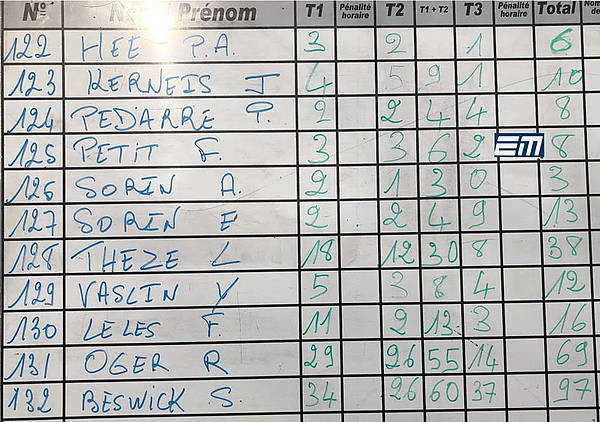 N° Prénom T1 Pénalité horaire T2 T1 + T2 T3 Pénalité horaire Total
122 HEE P.A. 3 2 1 6
123 KERNEIS J 4 5 9 1 10
124 PEDARRE P. 2 2 4 4 8
125 PETIT F. 3 3 6 2 EM 8
126 SORIN A. 2 1 3 0 3
127 SORIN E 2 2 4 9 13
128 THEZE L 18 12 30 8 38
129 VASLIN Y 5 3 8 4 12
130 LELES F. 11 2 13 3 16
131 OGER R 29 26 55 14 69
132 BESWICK S. 34 26 60 37 97